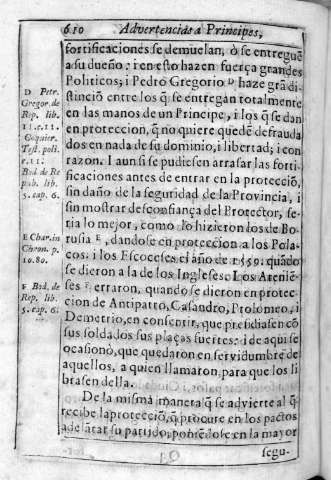 610 Advertencias a Principes,
fortificaciones se demuelan, ò se entreguẽ
a su dueño: i en esto hazen fuerça grandes
Politicos; i Pedro Gregorio D haze grã di-
stinciõ entre los q̃ se entregãn totalmente
en las manos de un Principe, i los q̃ se dan
en proteccion, q̃ no quiere quedẽ defrauda
dos en nada de su dominio, i libertad; i con
razon. I aun si se pudiesen arrasar las forti-
ficaciones antes de entrar en la protecciõ,
sin daño de la seguridad de la Provincia, i
sin mostrar desconfiança del Protector, se-
ria lo mejor, como lo hizieron los de Bo-
rusia E, dandose en proteccion a los Pola-
cos: i los Escoceses el año de 1559. quãdo
se dieron a la de los Ingleses: Los Ateniẽ-
ses F erraron, quando se dieron en protec-
cion de Antipatro, Casandro, Ptolomeo, i
Demetrio, en consentir, que presidiasen cõ
sus soldados sus plaças fuertes: i de aqui se
ocasionò, que quedaron en servidumbre de
aquellos, a quien llamaron para que los li
brasen della.
De la misma manera q̃ se advierte al q̃
recibe la protecciõ, q̃ procure en los pactos
adelãtar su partido, poniẽdose en la mayor
segu-
D Petr.
Gregor. de
Rep. lib.
11. c. 11.
Coquier.
Test. poli.
c. 11.
Bod. de Re
pub. lib.
5. cap. 6.
E Char. in
Chron. p.
10.80.
F Bod. de
Rep. lib.
5. cap. 6.